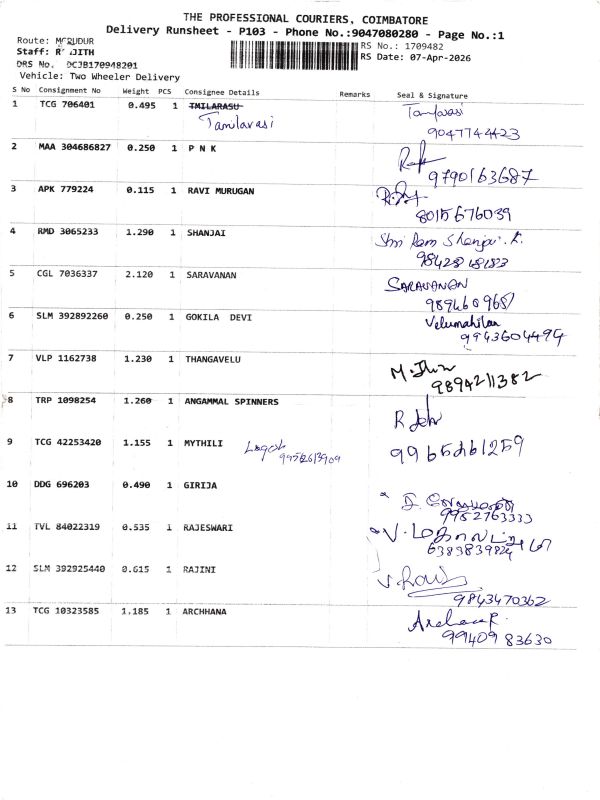 THE PROFESSIONAL COURIERS, COIMBATORE
Delivery Runsheet - P103 - Phone No.:9047080280 - Page No.:1
Route:
Staff:
RS No.: 1709482
DRS No. DCJB170948201
RS Date: 07-Apr-2026
Vehicle: Two Wheeler Delivery
S No Consignment No Weight PCS Consignee Details Remarks Seal & Signature
1 TCG 706401 0.495 1 TMILARASU
Tamilarasi
9047744423
2 MAA 304686827 0.250 1 P N K
9790163687
3 APK 779224 0.115 1 RAVI MURUGAN
8015676039
4 RMD 3065233 1.290 1 SHANJAI Shri Ram Shanjai
5 CGL 7036337 2.120 1 SARAVANAN SARAVANAN
6 SLM 392892260 0.250 1 GOKILA DEVI Velumahilan
9943604494
7 VLP 1162738 1.230 1 THANGAVELU
9894211382
8 TRP 1098254 1.260 1 ANGAMMAL SPINNERS
9 TCG 42253420 1.155 1 MYTHILI
9965261259
10 DDG 696203 0.490 1 GIRIJA
9952763333
11 TVL 84022319 0.535 1 RAJESWARI
12 SLM 392925440 0.615 1 RAJINI
9843470362
13 TCG 10323585 1.185 1 ARCHHANA
99409 83630